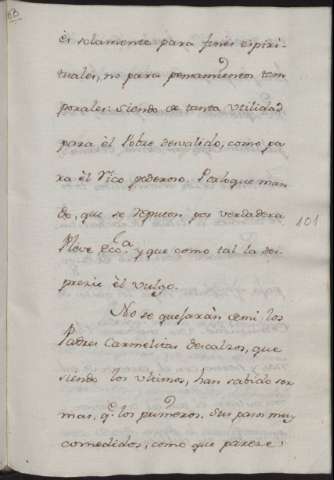 68
es solamente para fines espiri-
tuales, no para pensamientos tem
porales: siendo de tanta utilidad
para èl Pobre desvalido, como pa
ra èl Rico poderoso. Por lo que man
do, que se reputen por verdadera
Pleve y que como tal la des-
precie èl vulgo.
No se quejaràn de mi los
Padres Carmelitas descalzos, que
siendo los ultimos, han sabido ser
mas, q.e los primeros. Sus pasos muy
comedidos; como que parece
101